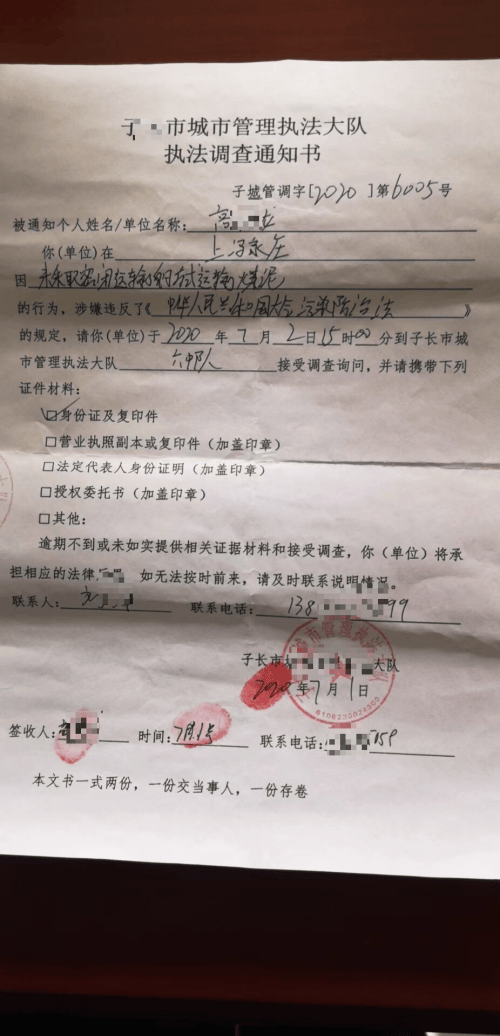 子 市城市管理执法大队
执法调查通知书
子城管调字[2020]第6005号
被通知个人姓名/单位名称: 高
你(单位)在 上冯家庄
因 未采取密闭运输 运输煤泥
的行为,涉嫌违反了《中华人民共和国大气污染防治法》
的规定,请你(单位)于2020年7月2日15时00分到子长市城
市管理执法大队 六中队 接受调查询问,并请携带下列
证件材料:
□身份证及复印件
□营业执照副本或复印件(加盖印章)
□法定代表人身份证明(加盖印章)
□授权委托书(加盖印章)
□其他:
逾期不到或未如实提供相关证据材料和接受调查,你(单位)将承
担相应的法律 如无法按时前来,请及时联系说明情况。
联系人: 联系电话: 138 99
子长市城 大队
2020年7月1日
签收人: 时间:7月1号 联系电话: 759
本文书一式两份,一份交当事人,一份存卷